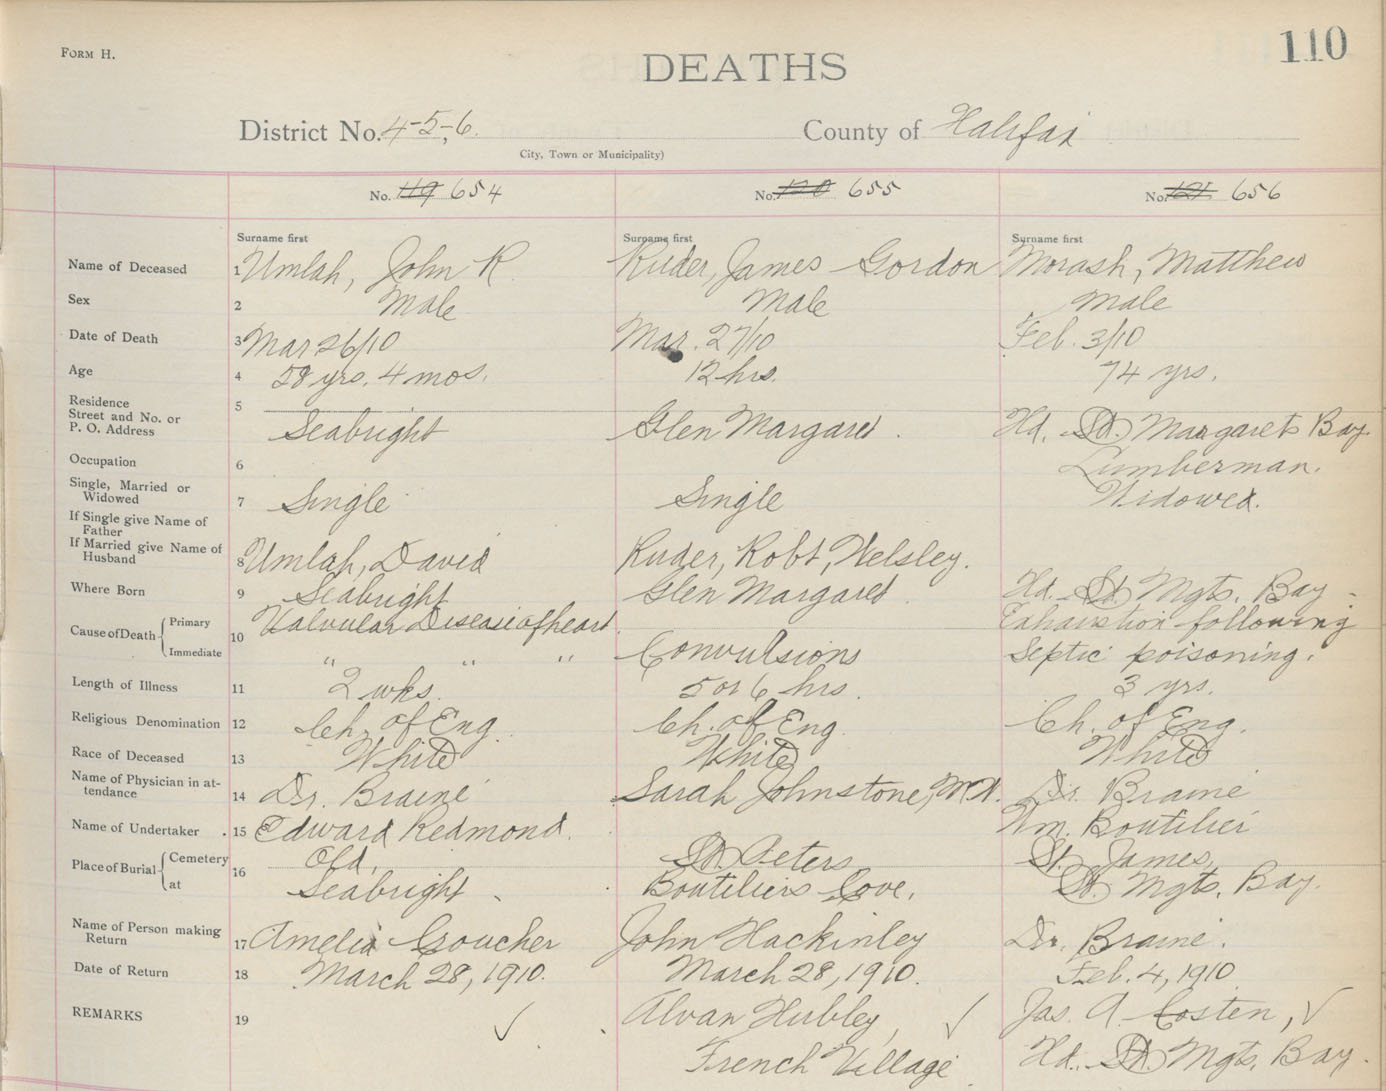 FORM H.
110
DEATHS
District No. 4-5-6. County of Halifax
City, Town or Municipality)
No. 119 654 No. 120 655 No. 121 656
Surname first Surname first Surname first
Name of Deceased 1 Umlah, John R Ruder, James Gordon Morash, Matthew
Sex 2 Male Male Male
Date of Death 3 Mar 26/10 Mar. 27/10 Feb. 3/10
Age 4 58 yrs. 4 mos. 12 hrs. 74 yrs.
Residence 5
Street and No. or
P. O. Address Seabright Glen Margaret. Hd. St. Margarets Bay
Occupation 6 Lumberman.
Single, Married or
Widowed 7 Single Single Widowed.
If Single give Name of
Father
If Married give Name of
Husband 8 Umlah, David Ruder, Robt, Welsley.
Where Born 9 Seabright Glen Margaret Hd. St. Mgts. Bay -
Cause of Death Primary 10 Valvular Disease of heart Exhaustion following
Immediate " " " Convulsions Septic poisoning.
Length of Illness 11 2 wks. 5 or 6 hrs. 3 yrs.
Religious Denomination 12 Ch. of Eng. Ch. of Eng. Ch. of Eng.
Race of Deceased 13 White White White
Name of Physician in at-
tendance 14 Dr. Braine Sarah Johnstone, M.W. Dr. Braine
Name of Undertaker . 15 Edward Redmond. Wm. Boutilier
Place of Burial Cemetery 16 Old, St. Peters St. James,
at Seabright. Boutiliers Cove. St. Mgts. Bay.
Name of Person making
Return 17 Amelia Croucher John Hackinley Dr. Braine.
Date of Return 18 March 28, 1910. March 28, 1910. Feb. 4, 1910
REMARKS 19 ✓ Alvan Hubley, ✓ Jas. A. Costen, ✓
French Village Hd. St. Mgts, Bay.